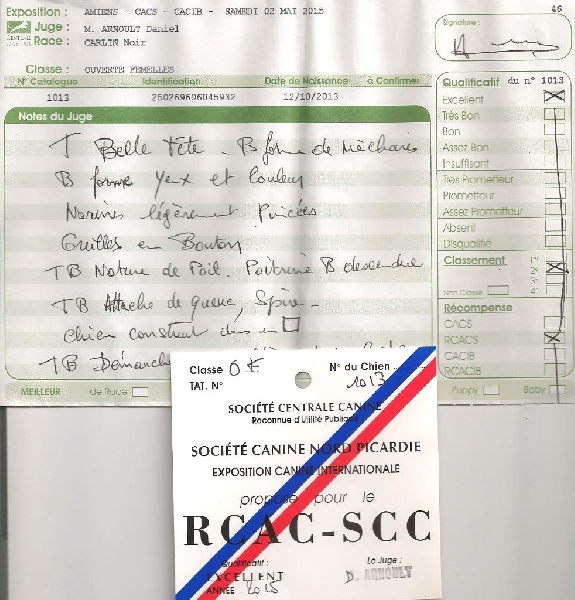 Exposition : AMIENS - CACS - CACIB - SAMEDI 02 MAI 2015 46
Juge : M. ARNOULT Daniel
Race : CARLIN Noir
CENTRALE CANINE
Signature :
Classe : OUVERTE FEMELLES
N° Catalogue Identification Date de Naissance à Confirmer
1013 250269606045932 12/10/2013
Notes du Juge
T Belle Tête - B forme de mâchoires
B forme yeux et couleur
Narines légèrement Pincées
Oreilles en Bouton
TB Nature de Poil. Poitrine B descendue
TB Attache de queue, Spire -
chien construit dans un □
TB Démarche
MEILLEUR : de Race Puppy Baby
Qualificatif du n° 1013
Excellent
Très Bon
Bon
Assez Bon
Insuffisant
Très Prometteur
Prometteur
Assez Prometteur
Absent
Disqualifié
Classement
Non Classé
Récompense
CACS
RCACS
CACIB
RCACIB
Classe O F N° du Chien
TAT. N° 1013
SOCIÉTÉ CENTRALE CANINE
Reconnue d'Utilité Publique
SOCIÉTÉ CANINE NORD PICARDIE
EXPOSITION CANINE INTERNATIONALE
proposé pour le
RCAC-SCC
Qualificatif : Le Juge :
EXCELLENT D. ARNOULT
ANNÉE 2015